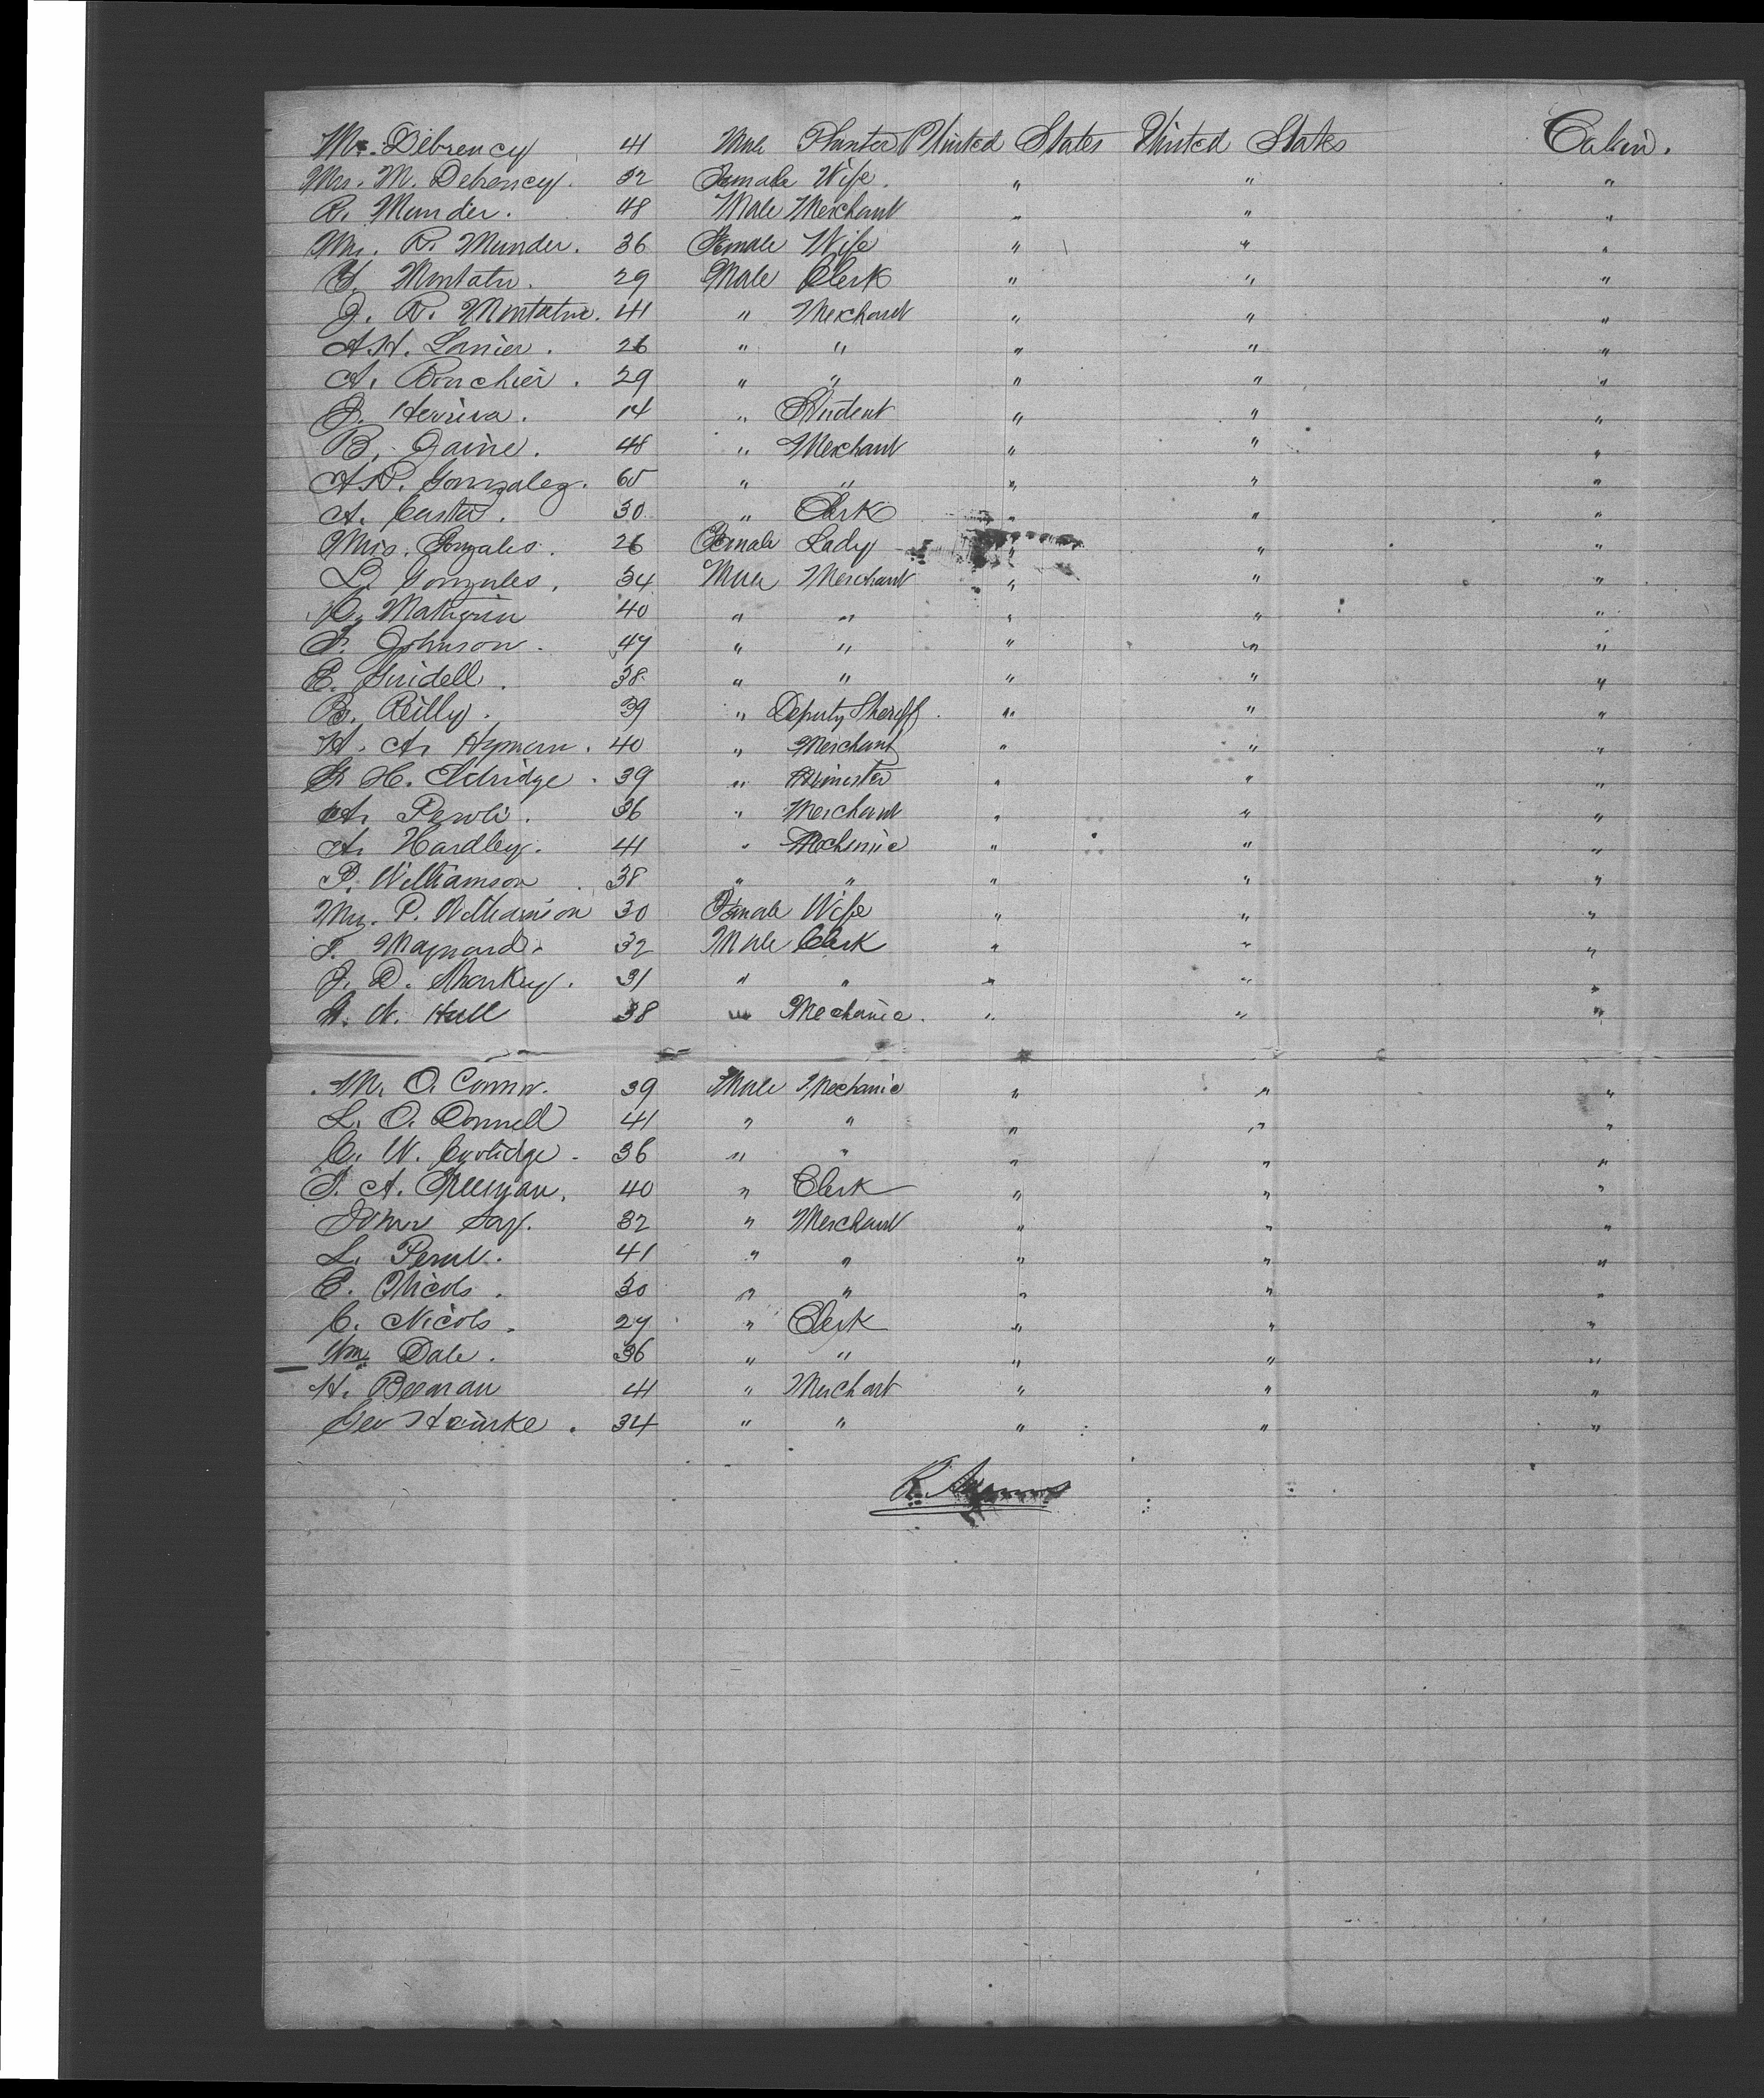 Mr. Debrency 41 Male Planter United States United States Cabin.
Mrs. M. Debrency. 32 Female Wife. " " "
R. Munder. 48 Male Merchant " " "
Mrs. R. Munder. 36 Female Wife " " "
29 Male Clerk " " "
J. R. 41 " Merchant " " "
A. H. Lanier. 26 " " " " "
A. Bouchier. 29 " " " " "
14 " Student " " "
B. Jaine. 48 " Merchant " " "
Gonzalez. 65 " " " " "
A. Casta. 30 " Clerk " " "
Mrs. Gonzales. 26 Female Lady " " "
L. Gonzules. 34 Male Merchant " " "
40 " " " " "
Johnson. 47 " " " " "
E. 38 " " " " "
B. Reilly. 39 " Deputy Sheriff. " " "
H. A. Hyman. 40 " Merchant " " "
H. Eldridge. 39 " Minister " " "
A. 36 " Merchant " " "
A. Hardley. 41 " Mechenic " " "
P. Williamson. 38 " " " " "
Mrs. P. Williamson 30 Female Wife " " "
Maynard. 32 Male Clerk " " "
J. D. Sharkey. 31 " " " " "
Hull 38 " Mechanic. " " "
M. O. Connor. 39 Male Mechanic " " "
L. O. Donnell 41 " " " " "
C. W. Coolidge. 36 " " " " "
A. Freeman. 40 " Clerk " " "
John Say. 32 " Merchant " " "
L. 41 " " " " "
E. Nicols. 30 " " " " "
C. Nicols. 27 " Clerk " " "
Wm. Dale. 36 " " " " "
H. Beeman 41 " Merchant " " "
Geo 34 " " " " "
R.